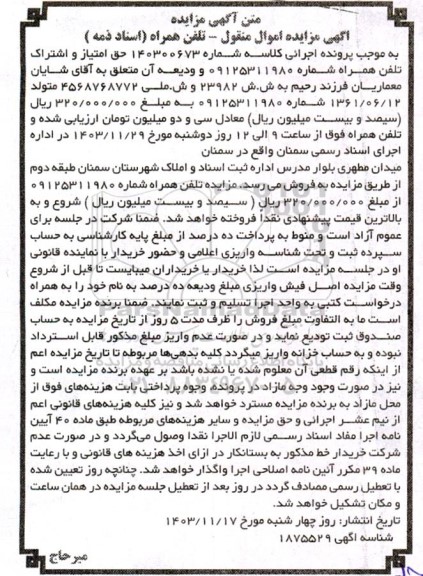 متن آگهی مزایده
آگهی مزایده اموال منقول - تلفن همراه (اسناد ذمه )
به موجب پرونده اجرائی کلاسه شماره ۱۴۰۳۰۰۶۷۳ حق امتیاز و اشتراک
تلفن همراه شماره ۰۹۱۲۵۳۱۱۹۸۰ و ودیعه آن متعلق به آقای شایان
معماریان فرزند رحیم به ش.ش ۲۳۹۸۲ و ش.ملی ۴۵۶۸۷۶۸۷۷۲ متولد
۱۳۶۱/۰۶/۱۲ شماره ۰۹۱۲۵۳۱۱۹۸۰ به مبلغ ۳۲۰/۰۰۰/۰۰۰ ریال
(سیصد و بیست میلیون ریال) معادل سی و دو میلیون تومان ارزیابی شده و
تلفن همراه فوق از ساعت ۹ الی ۱۲ روز دوشنبه مورخ ۱۴۰۳/۱۱/۲۹ در اداره
اجرای اسناد رسمی سمنان واقع در سمنان
میدان مطهری بلوار مدرس اداره ثبت اسناد و املاک شهرستان سمنان طبقه دوم
از طریق مزایده به فروش می رسد. مزایده تلفن همراه شماره ۰۹۱۲۵۳۱۱۹۸۰
از مبلغ ۳۲۰/۰۰۰/۰۰۰ ریال ( سیصد و بیست میلیون ریال ) شروع و به
بالاترین قیمت پیشنهادی نقداً فروخته خواهد شد. ضمناً شرکت در جلسه برای
عموم آزاد است و منوط به پرداخت ده درصد از مبلغ پایه کارشناسی به حساب
سپرده ثبت و تحت شناسه واریزی اعلامی و حضور خریدار یا نماینده قانونی
او در جلسه مزایده است لذا خریدار یا خریداران میبایست تا قبل از شروع
وقت مزایده اصل فیش واریزی مبلغ ودیعه ده درصد به نام خود را به همراه
درخواست کتبی به واحد اجرا تسلیم و ثبت نمایند. ضمناً برنده مزایده مکلف
است ما به التفاوت مبلغ فروش را ظرف مدت ۵ روز از تاریخ مزایده به حساب
صندوق ثبت تودیع نماید و در صورت عدم واریز مبلغ مذکور قابل استرداد
نبوده و به حساب خزانه واریز میگردد کلیه بدهی‌ها مربوطه تا تاریخ مزایده اعم
از اینکه رقم قطعی آن معلوم شده یا نشده باشد بر عهده برنده مزایده است و
نیز در صورت وجود وجه مازاد در پرونده وجوه پرداختی بابت هزینه‌های فوق از
محل مازاد به برنده مزایده مسترد خواهد شد و نیز کلیه هزینه‌های قانونی اعم
از نیم عشر اجرائی و حق مزایده و سایر هزینه‌های مربوطه طبق ماده ۴۰ آیین
نامه اجرا مفاد اسناد رسمی لازم الاجرا نقداً وصول می‌گردد و در صورت عدم
شرکت خریدار خط مذکور به بستانکار در ازای اخذ هزینه های قانونی و با رعایت
ماده ۳۹ مکرر آئین نامه اصلاحی اجرا واگذار خواهد شد. چنانچه روز تعیین شده
با تعطیل رسمی مصادف گردد در روز بعد از تعطیل جلسه مزایده در همان ساعت
و مکان تشکیل خواهد شد.
تاریخ انتشار: روز چهار شنبه مورخ ۱۴۰۳/۱۱/۱۷
شناسه آگهی ۱۸۷۵۵۲۹
میرحاج